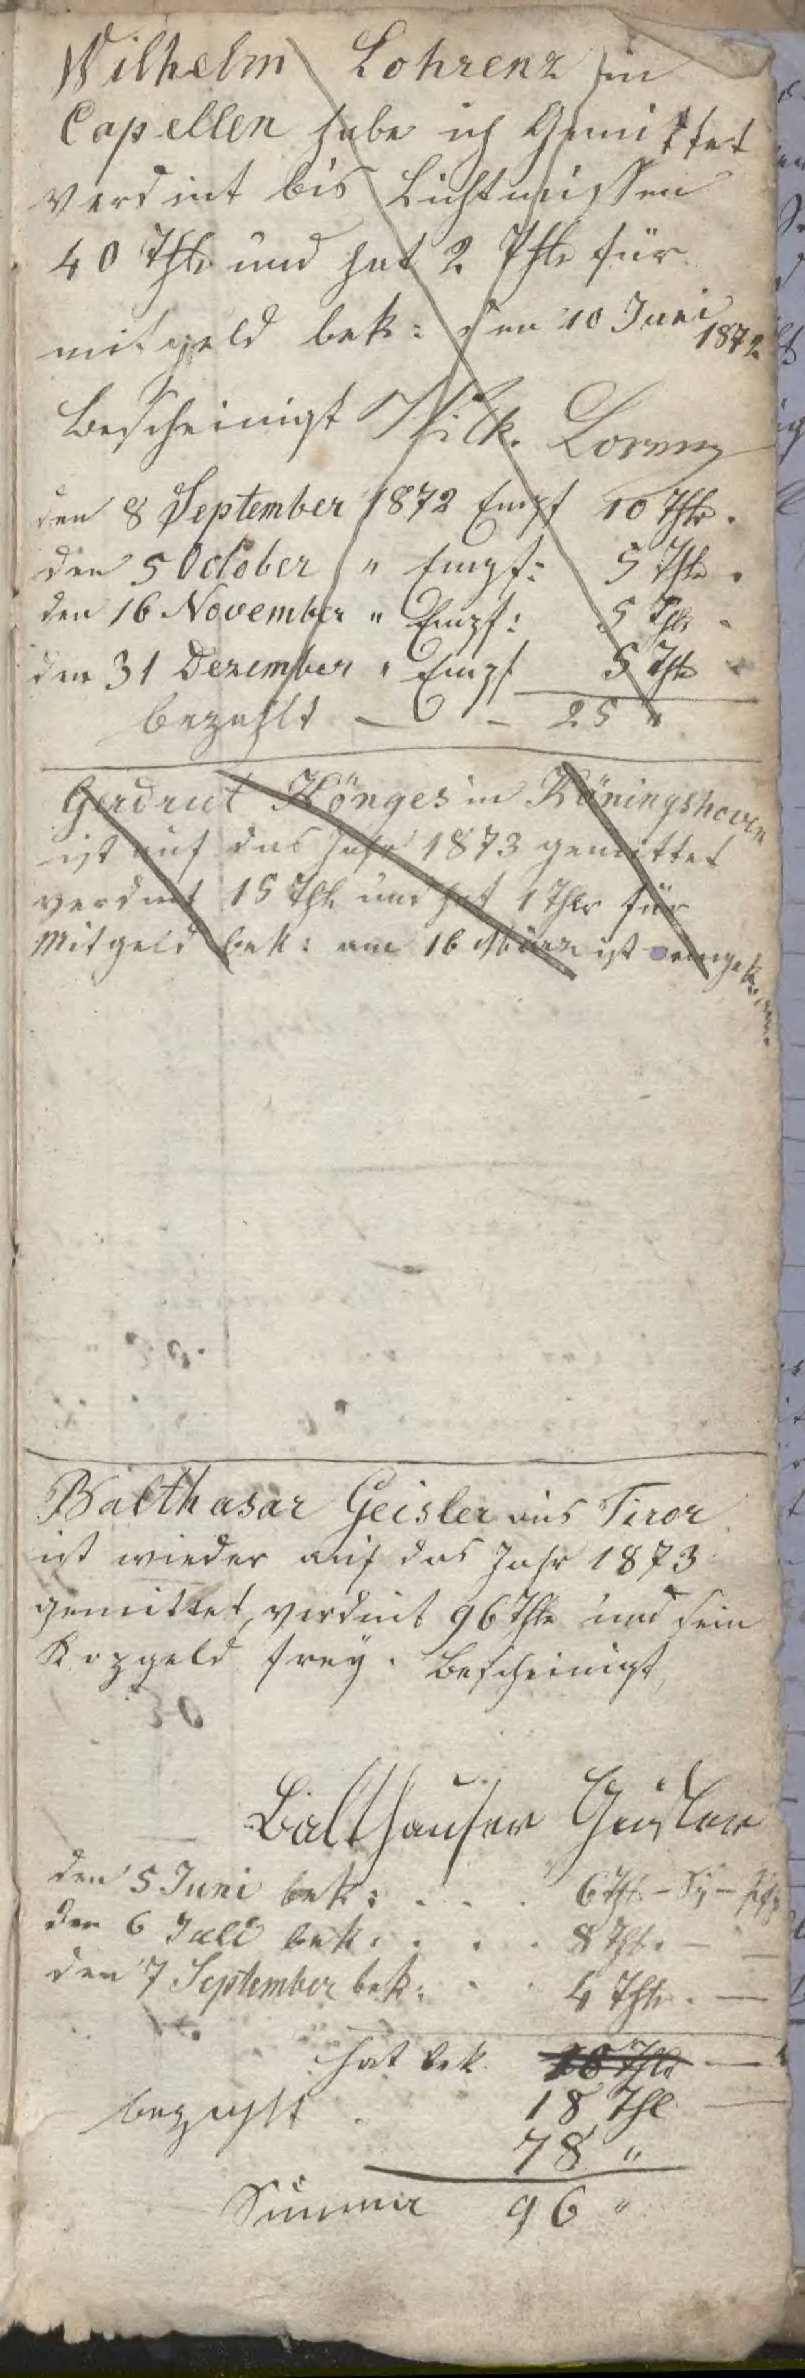 Wilhelm Lohrenz in
Capellen habe ich Gemittet
verdint bis Lichtmissen
40 Thlr und hat 2 Thlr für
mitgeld bek: den 10 Juni
1872
Bescheinigt Wilh. Lorenz
den 8 September 1872 Empf 10 Thlr.
den 5 October " Empf: 5 Thlr.
den 16 November " Empf: 5 Thlr -
den 31 Dezember " Empf 5 Thlr
bezahlt — - 25 "
Gerdrut Könges in Köningshoven
ist auf das Jahr 1873 gemittet
verdint 15 Thlr und hat 1 Thlr für
Mitgeld bek: am 16 März ist eingekommen
Balthasar Geisler aus Tiror
ist wieder auf das Jahr 1873
gemittet, verdint 96 Thlr und sein
Kopgeld frey. Bescheinigt
Balthauser Geisler
den 5 Juni bek: . . . 6 Thl - Sg - Pfg
den 6 Juli bek. . . . 8 Thl. — —
den 7 September bek: . . 4 Thlr. —
hat bek. 18 Thlr —
bezahlt . 18 Thl —
78 "
Summa 96 "